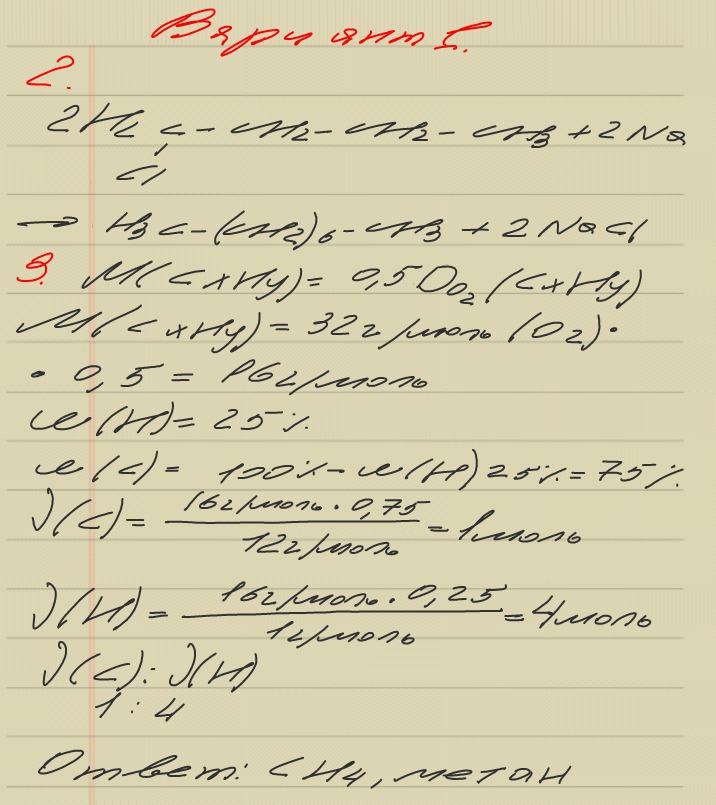 Вариант 1.
2.
2H₂C-CH₂-CH₂-CH₃+2Na
Cl
→ H₃C-(CH₂)₆-CH₃+2NaCl
3. M(CxHy)=0,5D O₂(CxHy)
M(CxHy)=32г/моль(O₂)·
· 0,5=16г/моль
w(H)=25%
w(C)= 100%-w(H)25%=75%
ν(C)= 16г/моль·0,75 / 12г/моль =1моль
ν(H)= 16г/моль·0,25 / 1г/моль =4моль
ν(C):ν(H)
1:4
Ответ: CH₄, метан